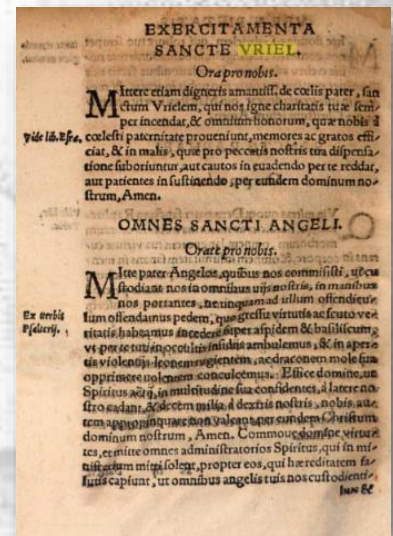 EXERCITAMENTA
SANCTE VRIEL.
Ora pro nobis.
MIttere etiam digneris amantiss. de cœlis pater, san
ctum Vrielem, qui nos igne charitatis tuæ sem-
per incendat, & omnium honorum, quæ nobis à
Vide lib. Esra.
cœlesti paternitate proueniunt, memores ac gratos effi-
ciat, & in malis, quæ pro peccatis nostris tua dispensa-
tione suboriuntur, aut cautos in euadendo per te reddat,
aut patientes in sustinendo, per eundem dominum no-
strum, Amen.
OMNES SANCTI ANGELI.
Orate pro nobis.
MItte pater Angelos, quibus nos commisisti, ut cu
stodiant nos in omnibus uijs nostris, in manibus
nos portantes, ne unquam ad ullum offendicu-
Ex uerbis
lum offendamus pedem, quo gressu virtutis ac scuto ve-
Psalterij.
ritatis habeamus incedere super aspidem & basiliscum,
vt per te tuti in occultis insidijs ambulemus, & in aper-
tis violentijs leonem rugientem, ac draconem mole sua
opprimere uolentem conculcemus. Effice domine, ut
Spiritus in multitudine sua confidentes, à latere no-
stro cadant, & decem milia à dextris nostris, nobis au-
tem appropinquare non valeant, per eundem Christum
dominum nostrum, Amen. Commoue domine virtu-
tes, et mitte omnes administratorios Spiritus, qui in mi-
nisterium mitti solent, propter eos, qui hæreditatem sa-
lutis capiunt, ut omnibus angelis tuis nos custodienti-